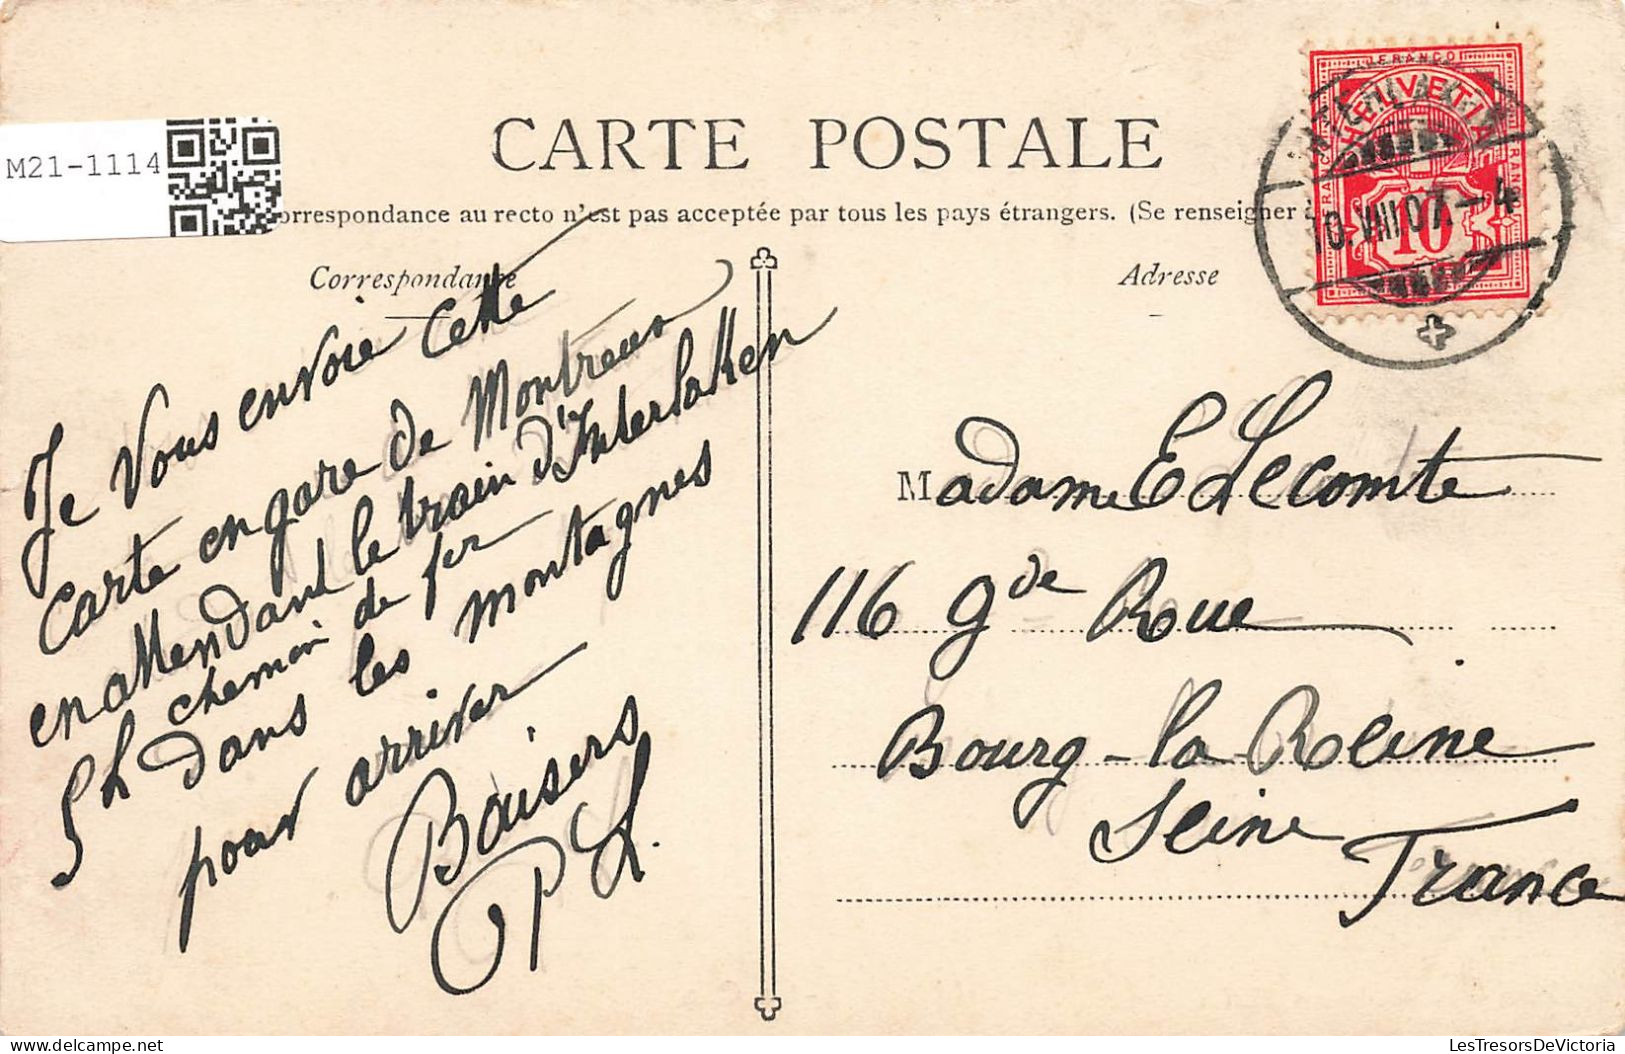 M21-1114
CARTE POSTALE
orrespondance au recto n'est pas acceptée par tous les pays étrangers. (Se renseigner
Correspondance
Adresse
FRANCO
HELVETIA
FRANCO
FRANCO
10
10.VIII.07.-4
Je vous envoie cette
carte en gare de Montreux
en attendant le train d'Interlaken
5h chemin de fer
dans les montagnes
pour arriver
Baisers
PL.
Madame E Lecomte
116 gde Rue
Bourg-la-Reine
Seine
France
LesTresorsDeVictoria